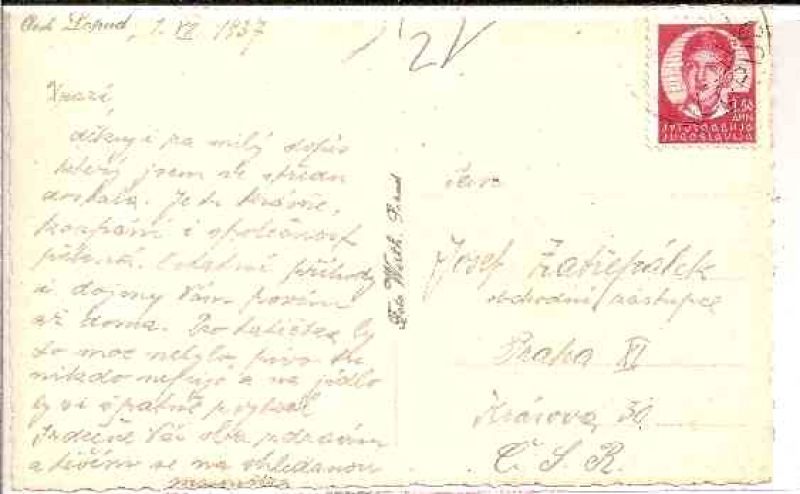 Lopud, 1. VII 1937
Drazí,
děkuji za milý dopis
který jsem ve středu
dostala. Je tu krásně,
koupání i společnost
příjemná. Ostatní příhody
a dojmy Vám povím
až doma. Pro tatíčka by
to moc nebylo, pivo tu
nikdo nepije a na jídlo
by si špatně zvykal
Srdečně Vás oba zdravím
a těším se na shledanou
Foto Weith.
Pan
Josef Zatřepálek
obchodní zástupce
Praha XI
Krásova 30
Č. S. R.
1.50
ДИН
ЈУГОСЛАВИЈА
JUGOSLAVIJA